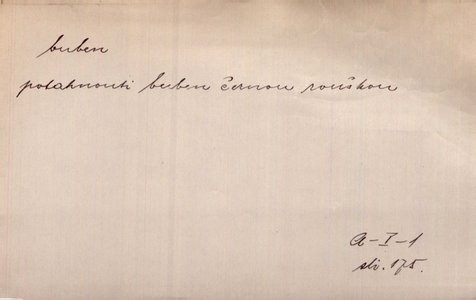 buben
potahnouti buben černou rouškou
A-I-1
str. 175.